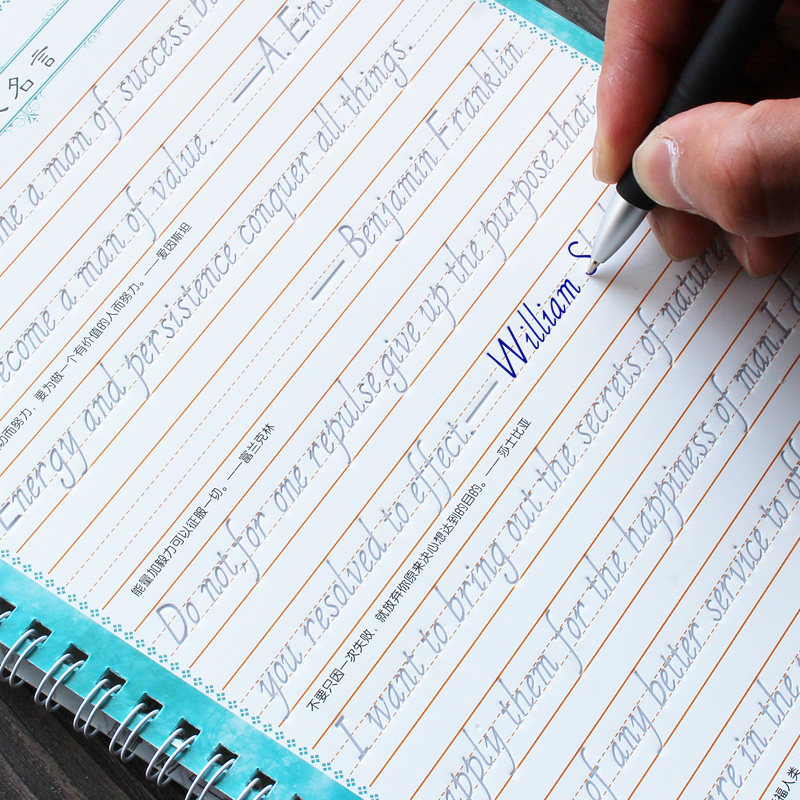 名言
me a man of success b
become a man of value. —A. Eins
功而努力，要为做一个有价值的人而努力。——爱因斯坦
Energy and persistence conquer all things.
— Benjamin Franklin
能量加毅力可以征服一切。——富兰克林
Do not,for one repulse,give up the purpose that
you resolved to effect.— William S
不要只因一次失败，就放弃你原来决心想达到的目的。——莎士比亚
I want to bring out the secrets of nature
apply them for the happiness of man.I
of any better service to of
are in the
福人类